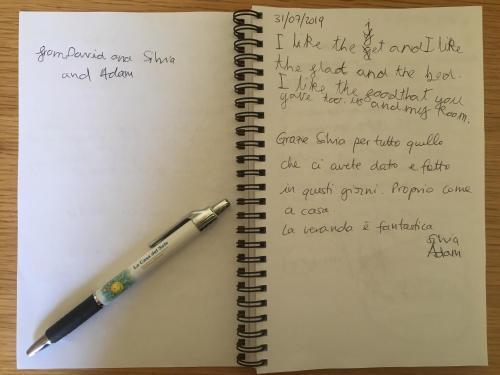 from David and Silvia
and Adam
31/07/2019
I like the and I like
the flat and the bed.
I like the food that you
gave too us and my room.
Grazie Silvia per tutto quello
che ci avete dato e fatto
in questi giorni. Proprio come
a casa
La veranda è fantastica
Silvia
Adam
La Casa del Sole